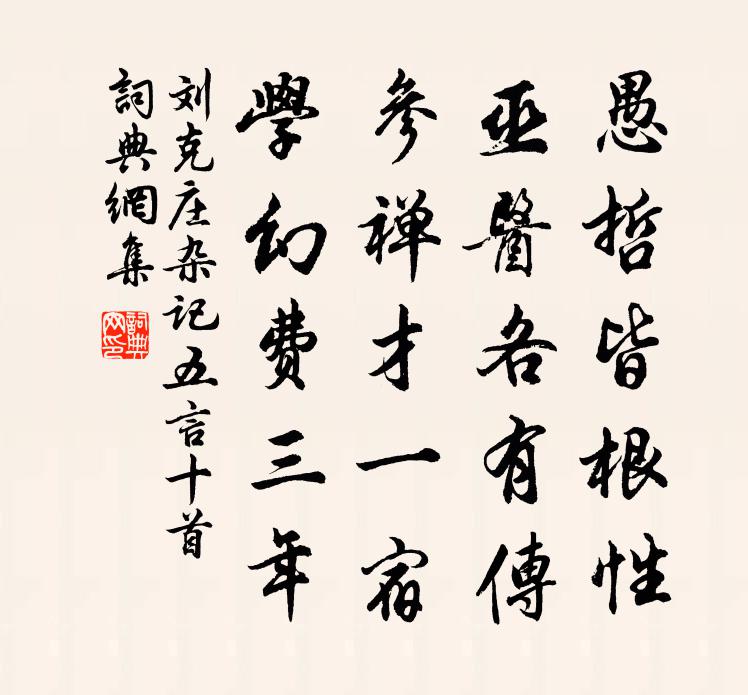 愚哲皆根性
巫醫各有傳
參禅才一宿
學幻費三年
刘克庄杂记五言十首
詞典網集
詞典网印